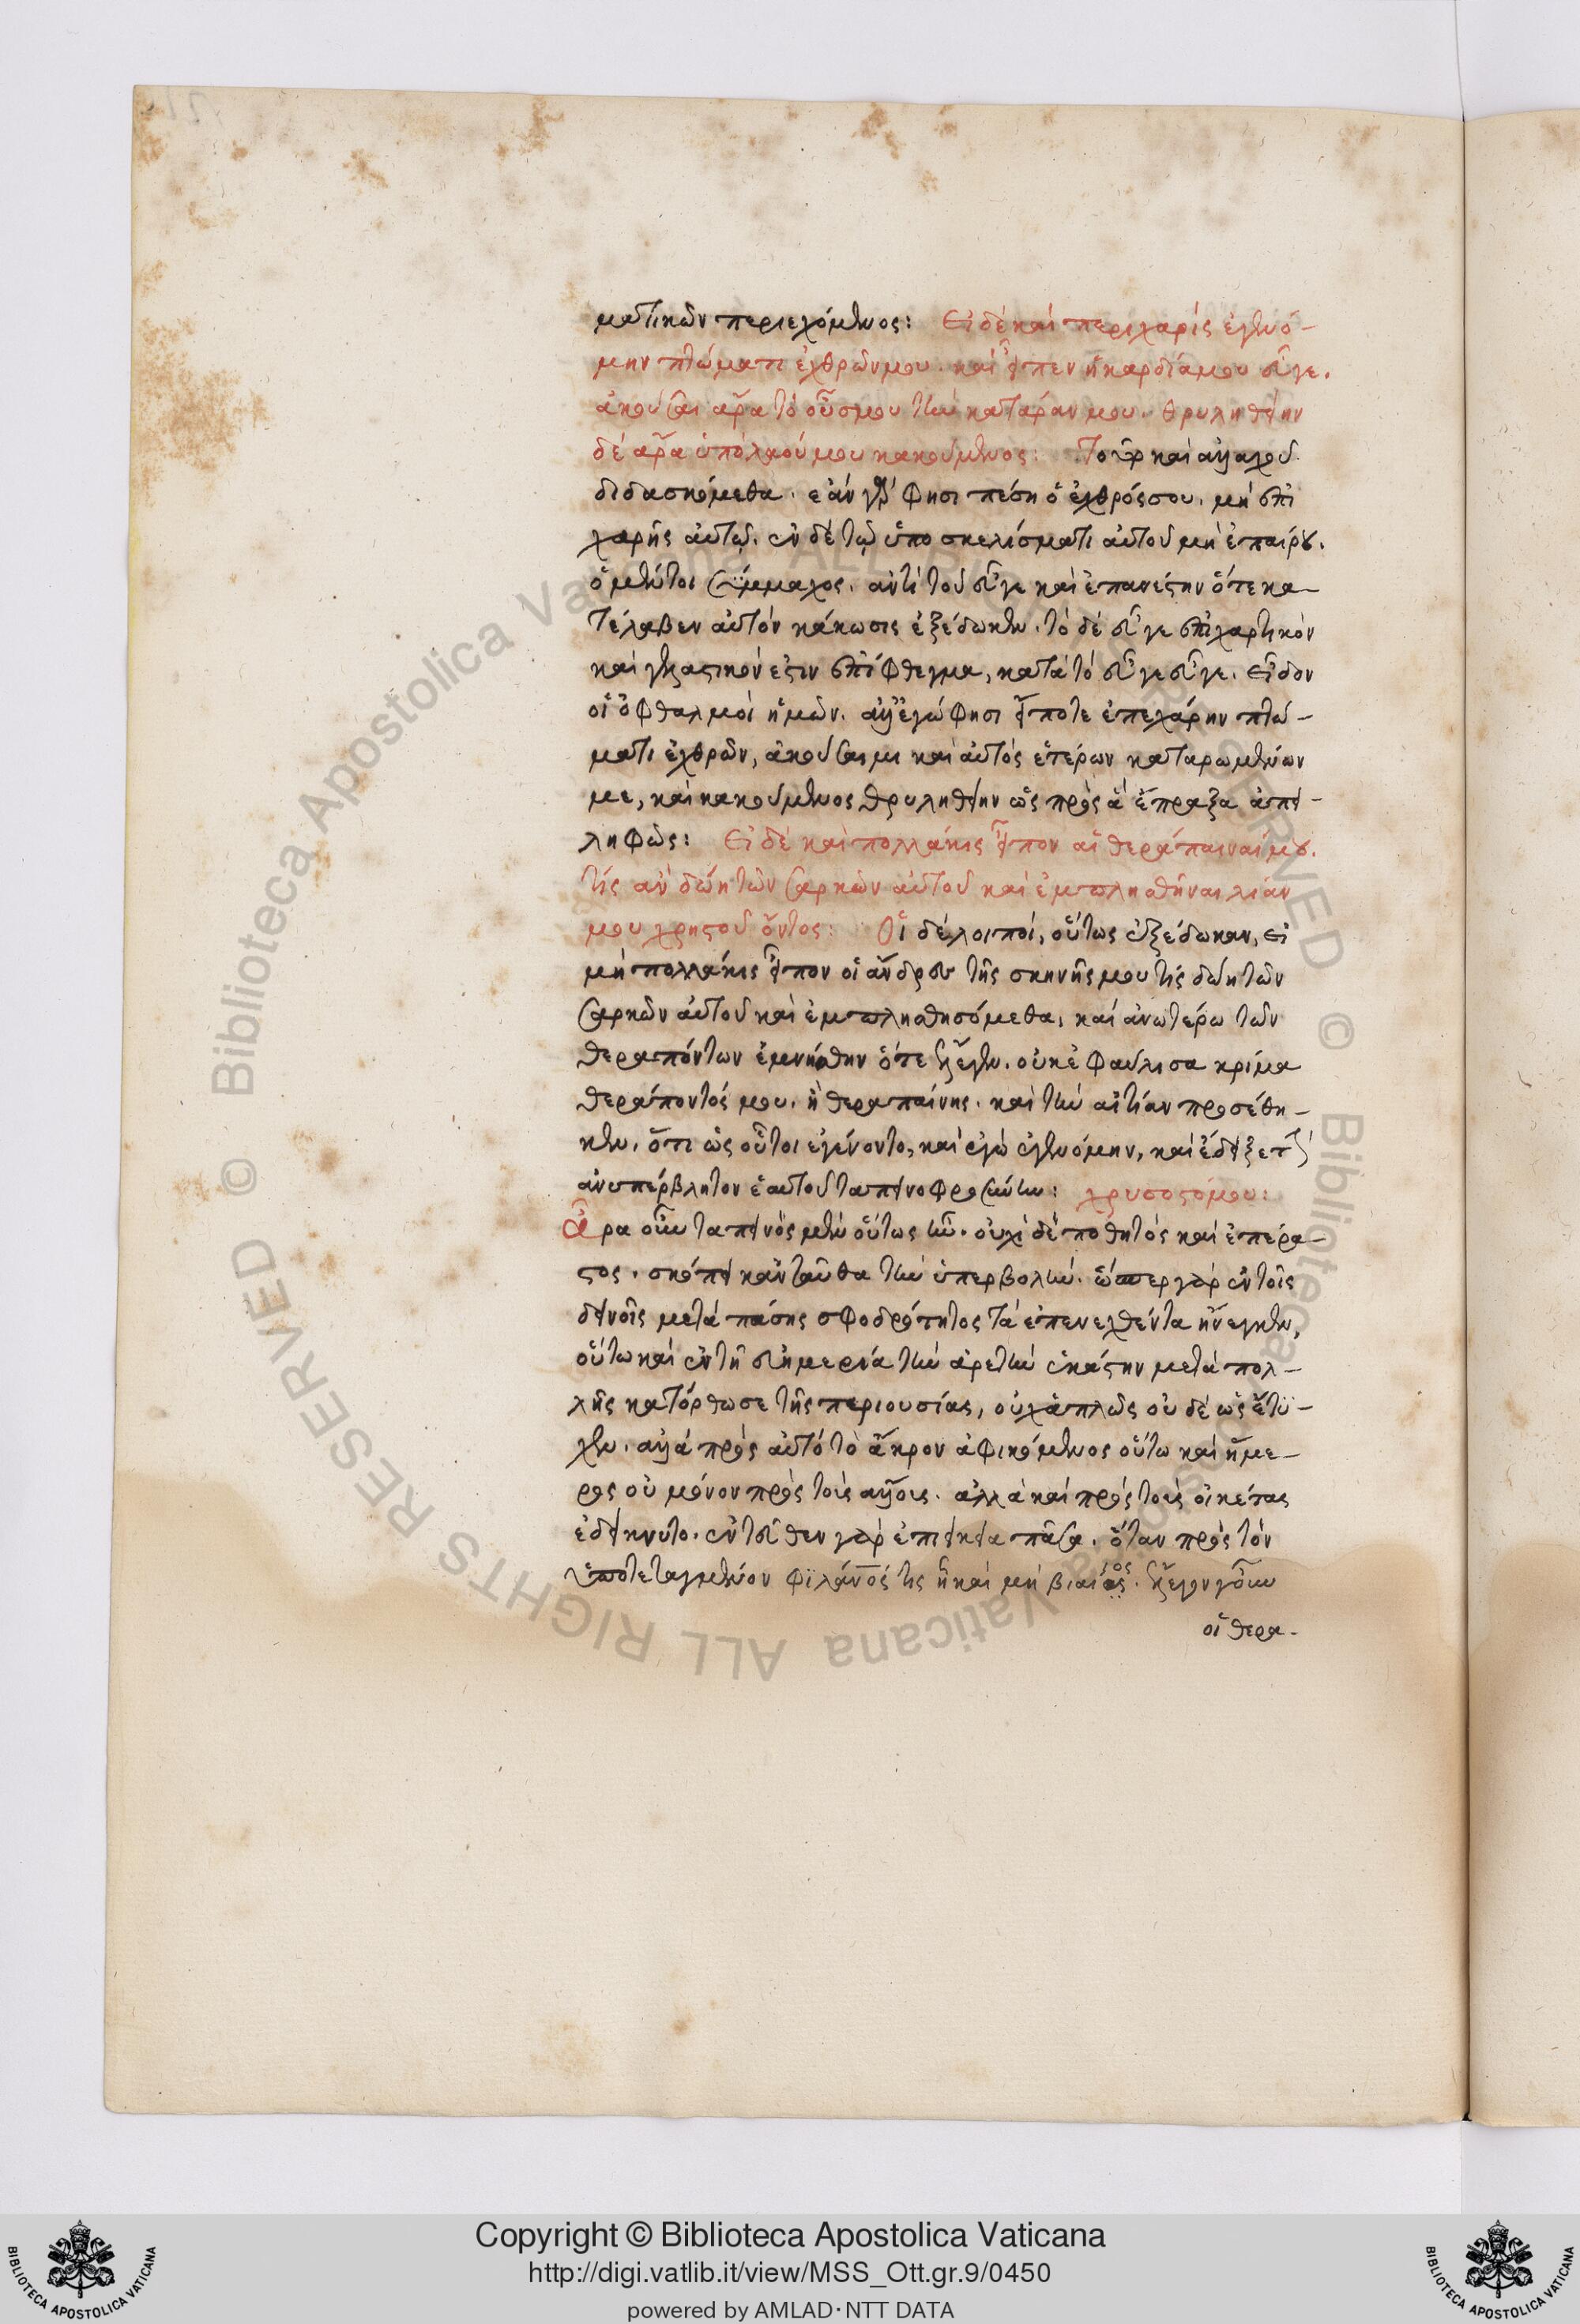 ματικῶν περιεχόμενος: Εἰ δὲ καὶ περιχαρὴς ἐγενό-
μην πτώματι ἐχθρῶν μου. καὶ εἶπεν ἡ καρδία μου εὖγε.
ἀκούσαι ἄρα τὸ οὖς μου τὴν κατάραν μου. θρυληθείην
δὲ ἄρα ὑπὸ λαοῦ μου κακούμενος: Τοῦτο καὶ ἀλλαχοῦ
διδασκόμεθα. ἐὰν γὰρ φησι πέση ὁ ἐχθρός σου. μὴ ἐπι
χαρῆς αὐτῷ. ἐν δὲ τῷ ὑποσκελίσματι αὐτοῦ μὴ ἐπαίρου.
ὁ μέντοι Σύμμαχος. ἀντὶ τοῦ εὖγε καὶ ἐπανέστην ὅτε κα-
τέλαβεν αὐτὸν κάκωσις ἐξέδωκεν. τὸ δὲ εὖγε ἐπιχαρτικόν
καὶ γελαστικόν ἐστιν ἐπίφθεγμα, κατὰ τὸ εὖγε εὖγε. εἶδον
οἱ ὀφθαλμοὶ ἡμῶν. ἀλλ' ἐγώ φησι εἴποτε ἐπεχάρην πτώ-
ματι ἐχθρῶν, ἀκούσαιμι καὶ αὐτὸς ἑτέρων καταρωμένων
με, καὶ κακούμενος θρυληθείην ὡς πρὸς ἃ ἔπραξα ἀπει-
ληφώς: Εἰ δὲ καὶ πολλάκις εἶπον αἱ θεράπαιναί μου.
τίς ἂν δώη τῶν σαρκῶν αὐτοῦ καὶ ἐμπλησθῆναι λίαν
μου χρηστοῦ ὄντος: Οἱ δὲ λοιποί, οὕτως ἐξέδωκαν, εἰ
μὴ πολλάκις εἶπον οἱ ἄνδρες τῆς σκηνῆς μου τίς δώη τῶν
σαρκῶν αὐτοῦ καὶ ἐμπλησθησόμεθα, καὶ ἀνωτέρω τῶν
θεραπόντων ἐμνήσθην ὅτε ἔλεγεν. οὐκ ἐφαύλισα κρίμα
θεράποντός μου. ἢ θεραπαίνης. καὶ τὴν αἰτίαν προσέθη-
κεν. ὅτι ὡς οὗτοι ἐγένοντο, καὶ ἐγὼ ἐγενόμην, καὶ ἔδειξε τὴν
ἀνυπέρβλητον ἑαυτοῦ ταπεινοφροσύνην: χρυσοστόμου:
Ἆρα οὖν ταπεινὸς μὲν οὕτως ἦν. οὐχὶ δὲ ποθητὸς καὶ ἐπέρα-
στος. σκόπει κἀνταῦθα τὴν ὑπερβολήν. ὥσπερ γὰρ ἐν τοῖς
δεινοῖς μετὰ πάσης σφοδρότητος τὰ ἐπενεχθέντα ἤνεγκεν,
οὕτω καὶ ἐν τῆ εὐημερία τὴν ἀρετὴν ἑκάστην μετὰ πολ-
λῆς κατόρθωσε τῆς περιουσίας, οὐχ ἁπλῶς οὐδὲ ὡς ἔτυ-
χεν. ἀλλὰ πρὸς αὐτὸ τὸ ἄκρον ἀφικόμενος οὕτω καὶ ἥμε-
ρος οὐ μόνον πρὸς τοὺς ἄλλους. ἀλλὰ καὶ πρὸς τοὺς οἰκέτας
ἐδείκνυτο. ἐντεῦθεν γὰρ ἐπιείκεια πᾶσα. ὅταν πρὸς τὸν
ὑποτεταγμένον φιλάνος τις ἦ καὶ μὴ βίαιος. ἔλεγον γοῦν
οἱ θερα-
Copyright © Biblioteca Apostolica Vaticana
http://digi.vatlib.it/view/MSS_Ott.gr.9/0450
powered by AMLAD·NTT DATA